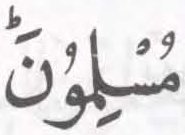 مُسْلِمُوْنَؕ